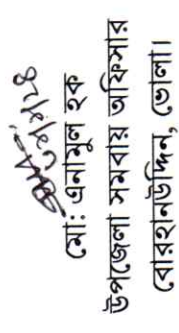 মো: এনামুল হক
উপজেলা সমবায় অফিসার
বোরহানউদ্দিন, ভোলা।